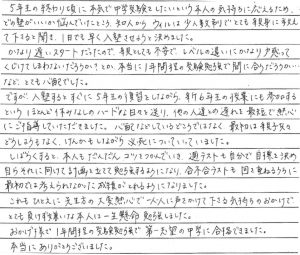 5年生の終わり頃に本気で中学受験をしたいという本人の気持ちに応えるため、
どの塾がいいか悩んでいたところ、知人から ウィルは少人数制でとても親身に教えて
下さると聞き、1日でも早く入塾させようと決めました。
かなり遅いスタートだったので、親としても不安で、レベルの違いにかなり戸惑って
くじけてしまわないだろうか?とか、本当に1年間程の受験勉強で間に合うだろうか…
など、とても心配でした。
ですが、入塾するとすぐに5年生の復習をしながら、新6年生の授業にも参加する
というほとんど休みなしのハードな日々を送り、他の人達との遅れを最短で熱心に
ご指導していただきました。心配などしているどころではなく、最初は親子共々
どうしようもなく、けんかもしながら必死についていっていました。
しばらくすると、本人もだんだんコツをつかんでいき、週テストも自分で目標を決め
自らそれに向けて計画を立てて勉強するようになり、合否合テストも回を重ねるうちに
最初では考えられなかった成績がとれるようになりました。
これもひとえに先生方の大変熱心で一人一人に声をかけて下さる気持ちのおかげで
とても負けず嫌いな本人は一生懸命勉強しました。
おかげ様で1年間程の受験勉強で第一志望の中学に合格できました。
本当にありがとうございました。